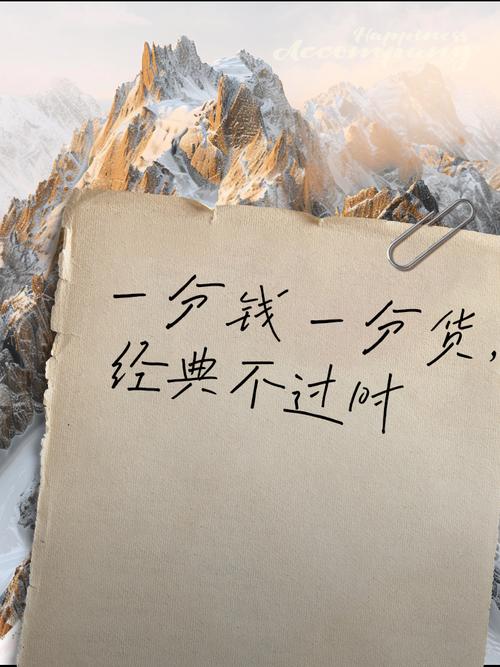 Happiness
Accompany
一分钱一分货,
经典不过时